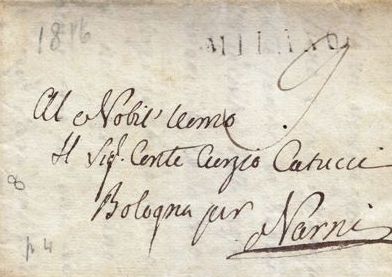 1816
MILANO
Al Nobil' Uomo
Il Sig.r Conte Curzio Catucci
8
Bologna per
Narni
p 4